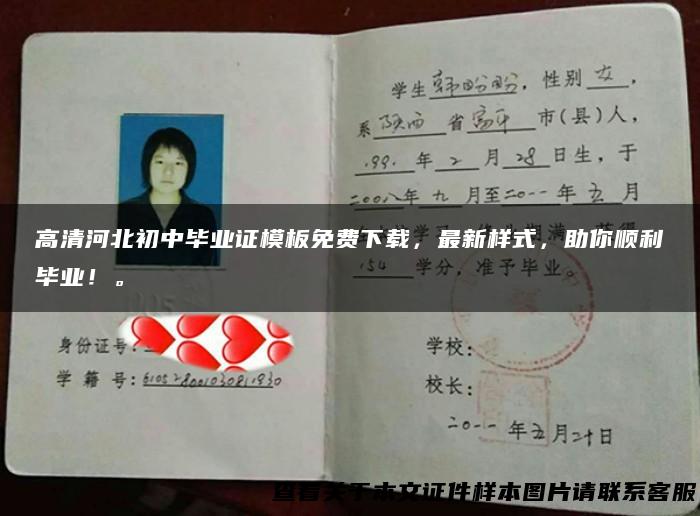 学生韩盼盼，性别女，
系陕西省富平市(县)人，
1991年2月28日生，于
二00八年九月至二0一一年五月
高清河北初中毕业证模板免费下载，最新样式，助你顺利
毕业！。
154学分，准予毕业。
身份证号：
学籍号：610528001030811930
学校：
校长：
二0一一年五月二十日
查看关于本文证件样本图片请联系客服